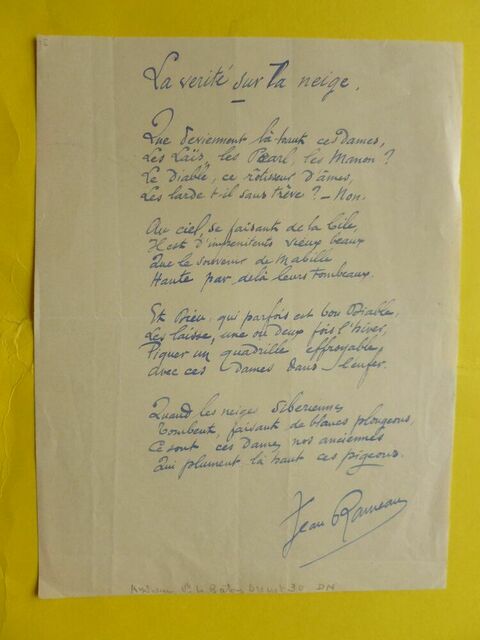 La verité sur la neige.
Que deviennent là-haut ces Dames,
Les Laïs, les Pearl, les Manon ?
Le Diable, ce rôtisseur d'âmes,
Les larde t-il sans trêve ? – Non.
Au ciel, se faisant de la bile,
Il est d'impénitents vieux beaux
Que le souvenir de Mabille
Hante par delà leurs tombeaux.
Et Dieu, qui parfois est bon Diable,
Les laisse, une ou deux fois l'hiver,
Piquer un quadrille effroyable
avec ces Dames dans l'enfer.
Quand les neiges Siberiennes
Tombent, faisant de blancs plongeons,
Ce sont ces Dames, nos anciennes
Qui plument là haut ces pigeons.
Jean Rameau